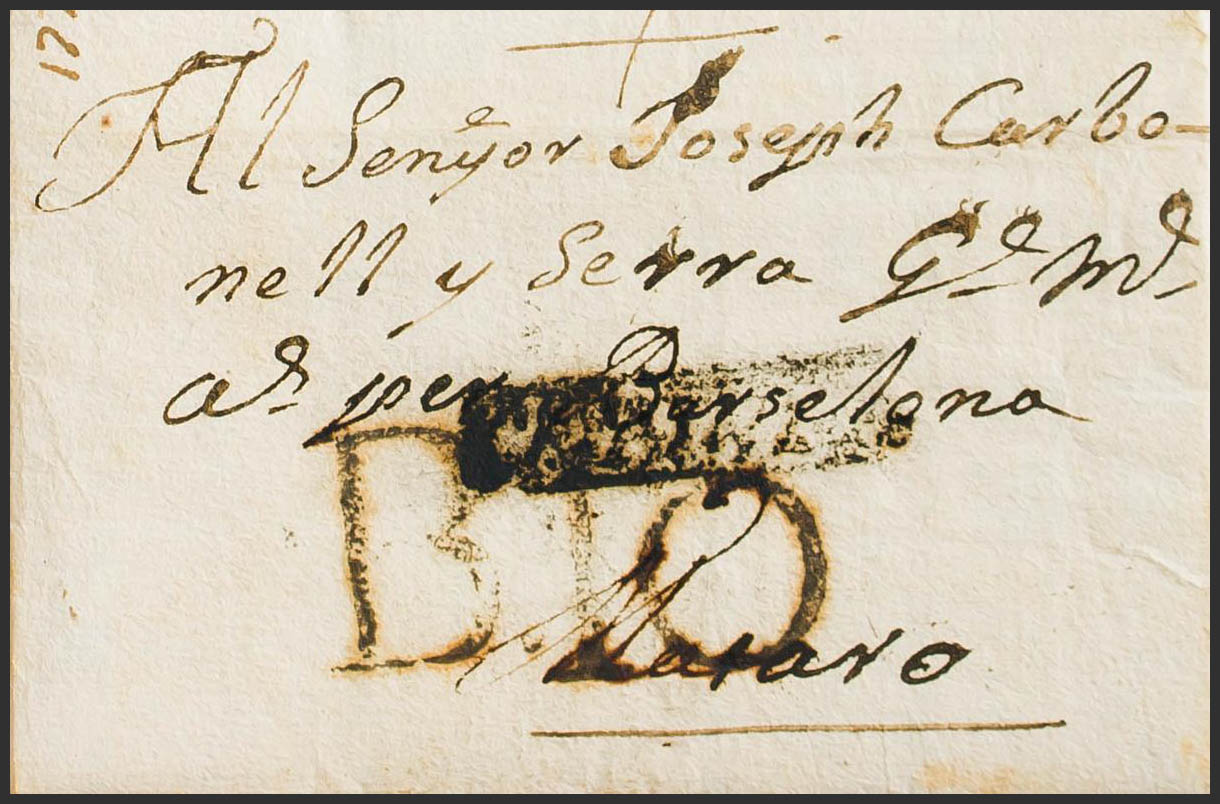 Al Señyor Joseph Carbo-
nell y Serra Gͤ. Mͩ.
aˢ. per Barselona
Mataro